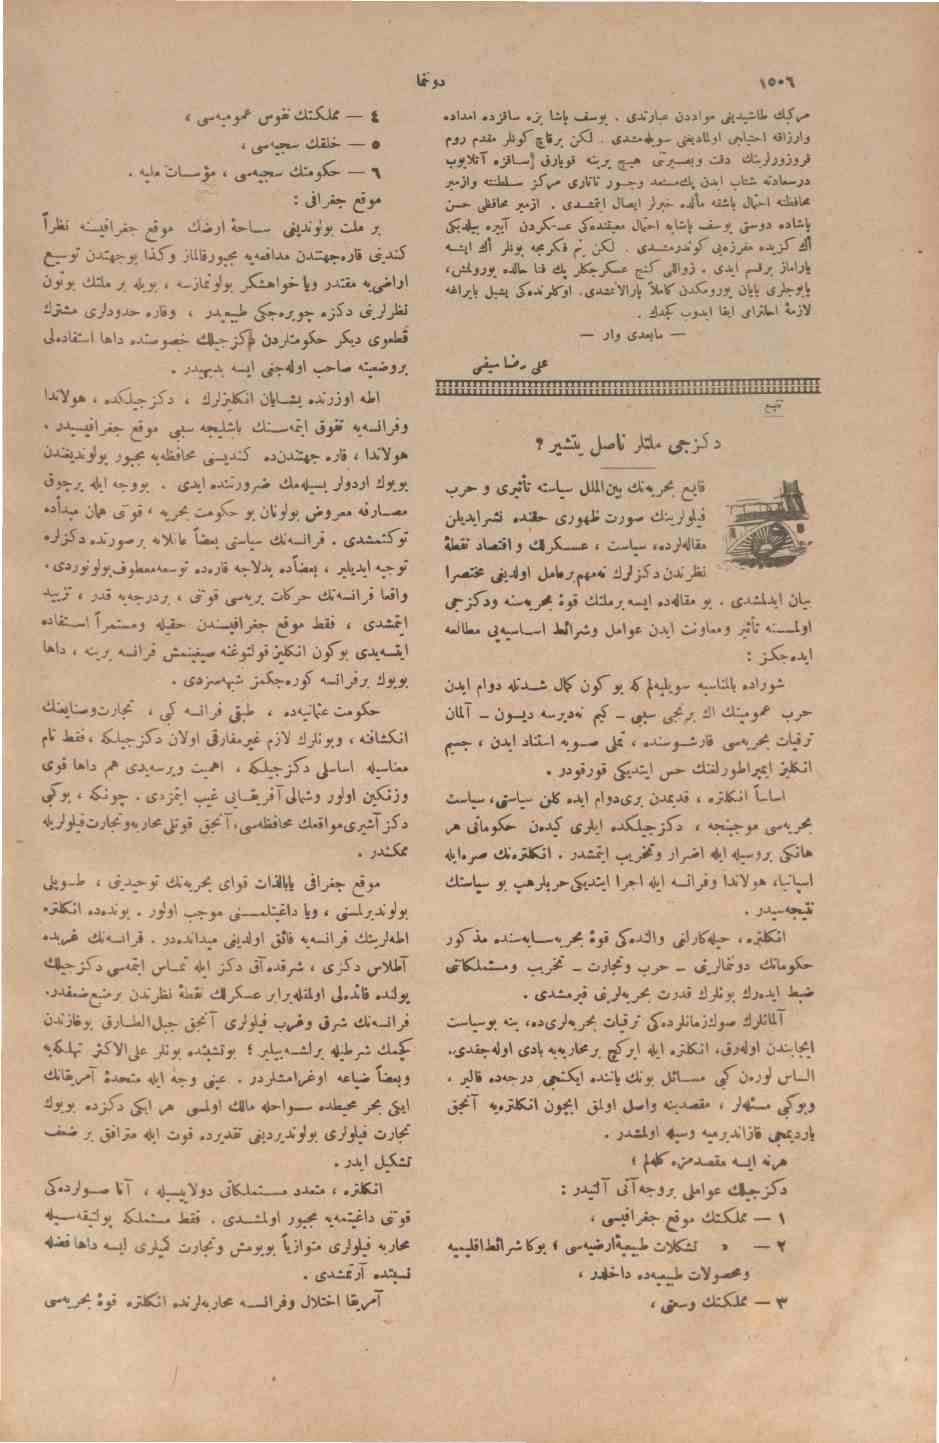 ١٥٠٦
دوننما
مركبك طاشیدیغی مواددن عبارتدی . یوسف پاشا بزه ساقزده امداده
وارزاقه احتیاجی اولمادیغنی سویله‌مشدی . لكن برقاچ كونلر مقدم روم
قروزورلرینك دقت وبصیرتنی هیچ یرینه قویارق [ساقزه آتلایوب
درسعادته شتاب ایدن یك‌مستعد وجسور تاتاری مركز سلطنته وازمیر
محافظنه احتمال باشقه مألده خبرلر ایصال ایتمشدی . ازمیر محافظی حسن
پاشاده دوستی یوسف پاشایه احتمال معیتنده‌كی عسكردن آییره بیلدیكی
أك كزیده مفرزه‌یی كوندرمشدی . لكن نم فكرمجه بونلر أك ایشه
یاراماز برقسم ایدی . زواللی كنج عسكرجكلر یك فنا حالده یورولمش،
پابوجلری پایان یورومكدن كاملاً پارالانمشدی . اوكلرنده‌كی یشیل بایراغه
لازمهٔ احترامی ایفا ایدوب كچدك .
— مابعدی وار —
علی رضا سیفی
تتبع
دكزجی ملتلر ناصل یتشیر ؟
قایع بحریه‌نك بین‌الملل سیاسته تأثیری و حرب
فیلولرینك صورت ظهوری حقنده نشرایدیلن
مقاله‌لرده، سیاست ، عسكرلك و اقتصاد نقطهٔ
نظرندن دكزلرك نه‌مهم‌برعامل اولدیغی مختصرا
بیان ایدلمشدی . بو مقاله‌ده ایسه برملتك قوهٔ بحریه‌سنه ودكزجی
اولمسنه تأثیر ومعاونت ایدن عوامل وشرائط اساسیه‌یی مطالعه
ایده‌جكز :
شوراده بالمناسبه سویلیه‌لم كه بو كون كمال شدتله دوام ایدن
حرب عمومینك اك برنجی سببی – كیم نه‌دیرسه دیسون – آلمان
ترقیات بحریه‌سی قارشوسنده ، تملی صویه استناد ایدن ، جسیم
انكلیز ایمپراطورلغنك حس ایتدیكی قورقودر .
اساساً انكلتره ، قدیمدن بری‌دوام ایده كلن سیاستی، سیاست
بحریه‌سی موجبنجه ، دكزجیلكده ایلری كیدن حكوماتی هر
هانكی بروسیله ایله اضرار وتخریب ایتمشدر . انكلتره‌نك صره‌ایله
اسپانیا، هولاندا وفرانسه ایله اجرا ایتدیكی‌حربلرهپ بو سیاستك
نتیجه‌سیدر .
انكلتره، حیله‌كارانی والنده‌كی قوهٔ بحریه‌سایه‌سنده مذكور
حكوماتك دوننمالرینی – حرب وتجارت – تخریب ومستملكاتی
ضبط ایده‌رك بونلرك قدرت بحریه‌لرینی قیرمشدی .
آلمانلرك صوك‌زمانلرده‌كی ترقیات بحریه‌لری‌ده، ینه بوسیاست
ایجابندن اوله‌رق، انكلتره ایله ایركچ برمحاربه‌یه بادی اوله‌جقدی.
الساس لورهن كبی مسائل بونك یاننده ایكنجی درجه‌ده قالیر ،
وبوكبی مسئله‌لر ، مقصدینه واصل اولمق ایچون انكلتره‌یه آنجق
یاردیمجی قازاندیرمیه وسیله اولمشدر .
هرنه ایسه مقصدمزه كله‌لم ؛
دكزجیلك عواملی بروجه‌آتی آلتیدر :
١ – مملكتك موقع جغرافیسی ،
٢ –   »   تشكلات طبیعیهٔ‌ارضیه‌سی ؛ بوكا شرائط‌اقلیمیه
ومحصولات طبیعیه‌ده داخلدر ،
٣ – مملكتك وسعتی ،
٤ – مملكتك نفوس عمومیه‌سی ،
٥ – خلقك سجیه‌سی ،
٦ – حكومتك سجیه‌سی ، مؤسسات ملیه .
موقع جغرافی :
بر ملت بولوندیغی ساحهٔ ارضك موقع جغرافیسنه نظراً
كندینی قاره‌جهتندن مدافعه‌یه مجبورقالماز وكذا بوجهتدن توسیع
اراضی‌یه مقتدر ویا خواهشكر بولونمازسه ، بویله بر ملتك بوتون
نظرلرینی دكزه چویره‌جكی طبیعیدر ، وقاره حدودلری مشترك
قطعوی دیكر حكومتلردن دكزجیلك خصوصنده داها استفاده‌لی
بروضعیته صاحب اوله‌جغی ایسه بدیهیدر .
اطه اوزرنده یشایان انكلیزلرك ، دكزجیلكده ، هولاندا
وفرانسه‌یه تفوق ایتمه‌سنك باشلیجه سببی موقع جغرافیسیدر .
هولاندا ، قاره جهتندن‌ده كندیسنی محافظه‌یه مجبور بولوندیغندن
بویوك اردولر بسیله‌مك ضرورتنده ایدی . بووجه ایله برچوق
مصارفه معروض بولونان بو حكومت بحریه ، قوتی همان مبدأده
توكنمشدی . فرانسه‌نك سیاستی بعضاً عاقلانه برصورتده دكزلره
توجیه ایدیلیر ، بعضاًده یدلاجه قاره‌ده توسعه‌معطوف‌بولونوردی.
واقعا فرانسه‌نك حركات بریه‌سی قوتنی ، بردرجه‌یه قدر ، تزیید
ایتمشدی ، فقط موقع جغرافیسندن حقیله ومستمراً استفاده
ایتسه‌یدی بوكون انكلیز قولتوغنه صیغینمش فرانسه یرینه ، داها
بویوك برفرانسه كوره‌جكمز شبهه‌سزدی .
حكومت عثمانیه‌ده ، طبقی فرانسه كبی ، تجارت‌وصنایعنك
انكشافنه ، وبونلرك لازم غیرمفارقی اولان دكزجیلكه ، فقط تام
معناسیله اساسلی دكزجیلكه ، اهمیت ویرسه‌یدی هم داها قوی
وزنكین اولور وشمالی آفریقایی غیب ایتمزدی . چونكه ، بوكبی
دكز آشیری‌مواقعك محافظه‌سی، آنجق قوتلی‌محاربه‌وتجارت‌فیلولریله
ممكندر .
موقع جغرافی بابالذات قوای بحریه‌نك توحیدینی ، طوپلی
بولوندیرلمسنی ، ویا داغیتلمسنی موجب اولور . بونده‌ده انكلتره
اطه‌لرینك فرانسه‌یه فائق اولدیغی میدانده‌در . فرانسه‌نك غربده
آطلاس دكزی ، شرقده آق دكز ایله تماس ایتمه‌سی دكزجیلك
یولنده فائده‌لی اولمقله‌برابر عسكرلك نقطهٔ نظرندن برمنبع‌ضعفدر.
فرانسه‌نك شرق وغرب فیلولری آنجق جبل‌الطارق بوغازندن
كچمك شرطیله برلشه‌بیلیر ؛ بوتشبثده بونلر علی‌الاكثر تهلكه‌یه
وبعضاً ضیاعه اوغرامشلردر . عینی وجه ایله متحدهٔ آمریقانك
ایكی بحر محیطده سواحله مالك اولمسی هر ایكی دكزده بویوك
تجارت فیلولری بولوندیردیغی تقدیرده قوت ایله مترافق بر ضعف
تشكیل ایدر .
انكلتره ، متعدد مستملكاتی دولاییسیله ، آنا صولرده‌كی
قوتنی داغیتمه‌یه مجبور اولمشدی . فقط مستملكه پولتیقه‌سیله
محاربه فیلولری متوازیاً بویومش وتجارت كمیلری ایسه داهافضله
نسبتده آرتمشدی .
آمریقا اختلال وفرانسه محاربه‌لرنده انكلتره قوهٔ بحریه‌سی